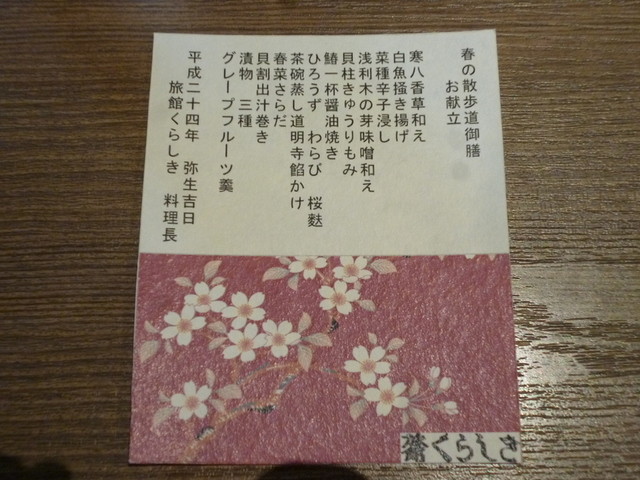 春の散歩道御膳
お献立
寒八香草和え
白魚掻き揚げ
菜種辛子浸し
浅利木の芽味噌和え
貝柱きゅうりもみ
鰆一杯醤油焼き
ひろうず わらび 桜麩
茶碗蒸し道明寺餡かけ
春菜さらだ
貝割出汁巻き
漬物 三種
グレープフルーツ羹
平成二十四年 弥生吉日
旅館くらしき 料理長
くらしき